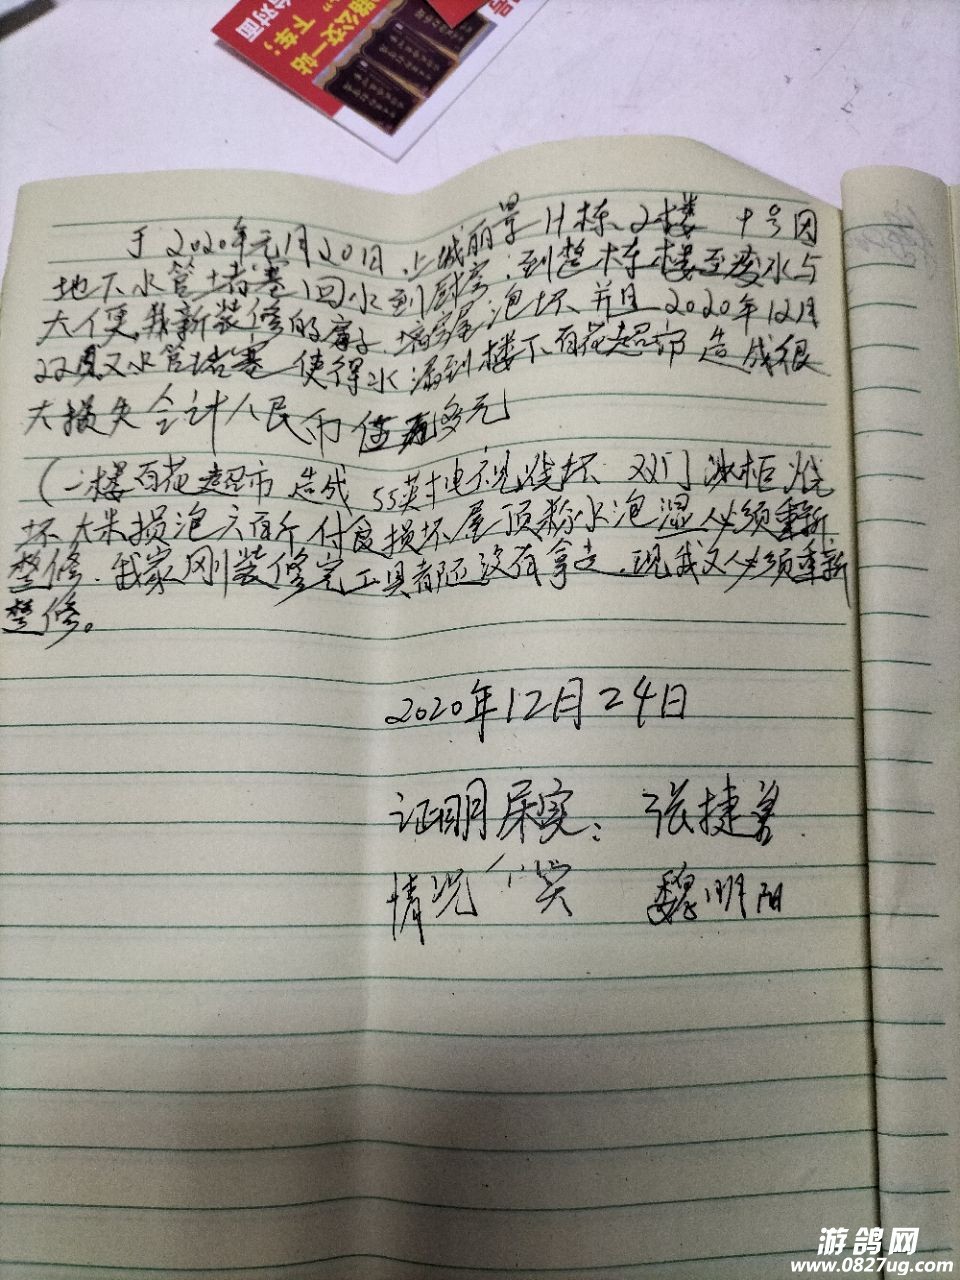 公交一站
下车;
台对面
于2020年元月20日.上城丽景H栋2楼 十号因
地下水管堵塞回水到厨房,到整栋楼至废水与
大便.我新装修的房子.墙 屋泡坏并且2020年12月
22 又水管堵塞 使得水漏到楼下百花超市 造成很
大损失合计人民币 多元
(一楼百花超市 造成55英寸电视烧坏.双门冰柜烧
坏大米损泡六百斤付食损坏屋顶粉水泡湿必须重新
整修.我家刚装修完工具都还没有拿走.现我又必须重新
整修。
2020年12月24日
证明属实: 张捷
情况 实 魏明阳
游鸽网
www.0827ug.com